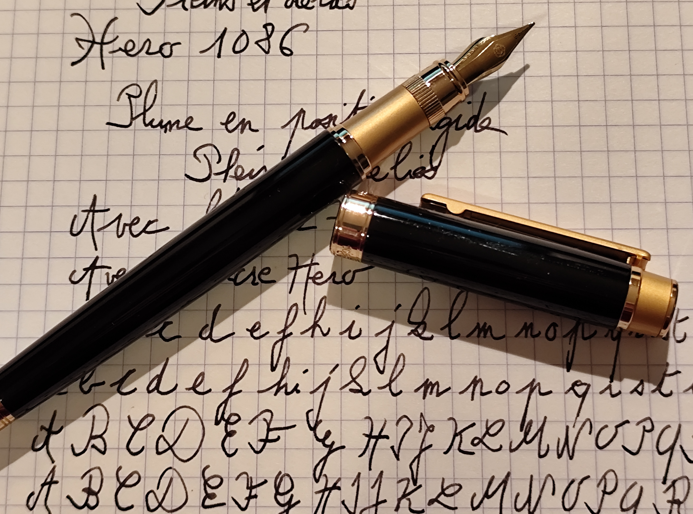 Pleins et déliés
Hero 1086
Plume en position rigide
Pleins
Avec
Avec Hero
c d e f h i j k l m n o p q r s t
b c d e f h i j k l m n o p q r s t
A B C D E F G H I J K L M N O P Q
A B C D E F G H I J K L M N O P Q R